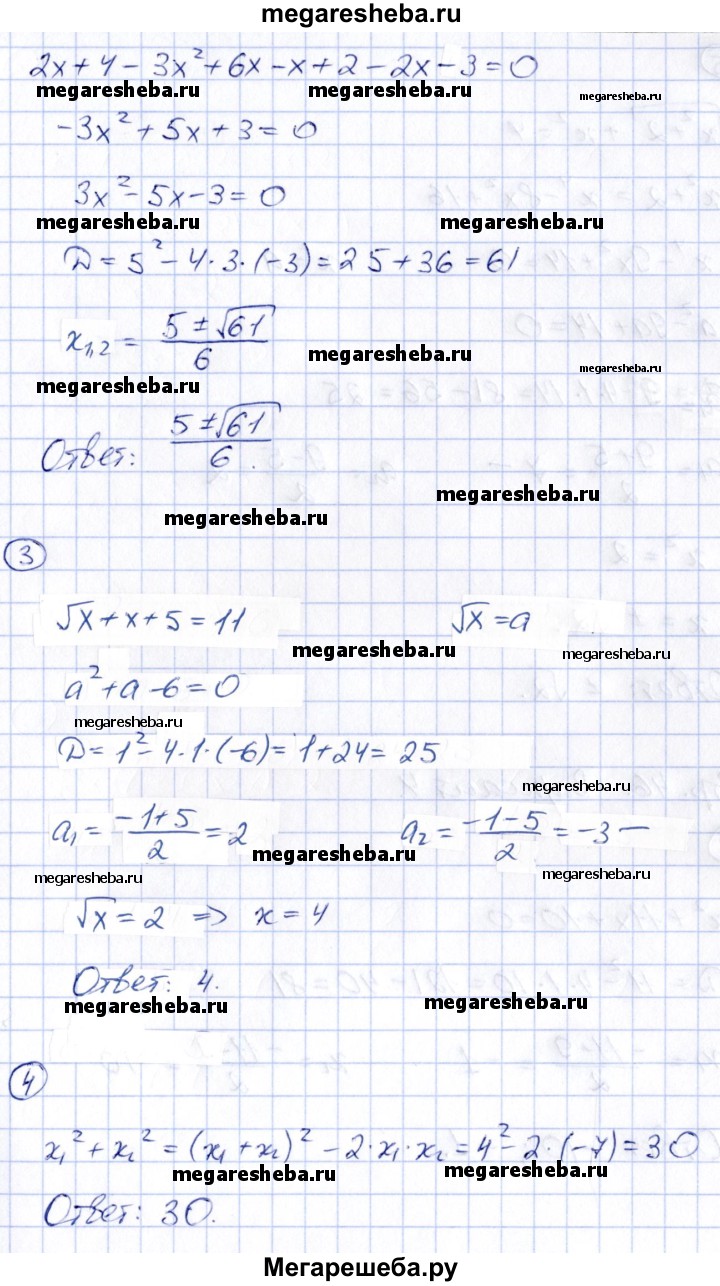 megaresheba.ru
2x+4-3x²+6x-x+2-2x-3=0
megaresheba.ru megaresheba.ru megaresheba.ru
-3x²+5x+3=0
3x²-5x-3=0
megaresheba.ru megaresheba.ru
D=5²-4·3·(-3)=25+36=61
x₁,₂ = (5±√61)/6
megaresheba.ru megaresheba.ru
megaresheba.ru
Ответ: (5±√61)/6.
megaresheba.ru
megaresheba.ru
3
√x+x+5=11 √x=a
megaresheba.ru megaresheba.ru
a²+a-6=0
megaresheba.ru
D=1²-4·1·(-6)=1+24=25
megaresheba.ru
a₁=(-1+5)/2=2 a₂=(-1-5)/2=-3 —
megaresheba.ru
megaresheba.ru megaresheba.ru
√x=2 => x=4
Ответ: 4.
megaresheba.ru megaresheba.ru
4
x₁²+x₂²=(x₁+x₂)²-2·x₁·x₂=4²-2·(-7)=30
megaresheba.ru megaresheba.ru
Ответ: 30.
Мегарешеба.ру